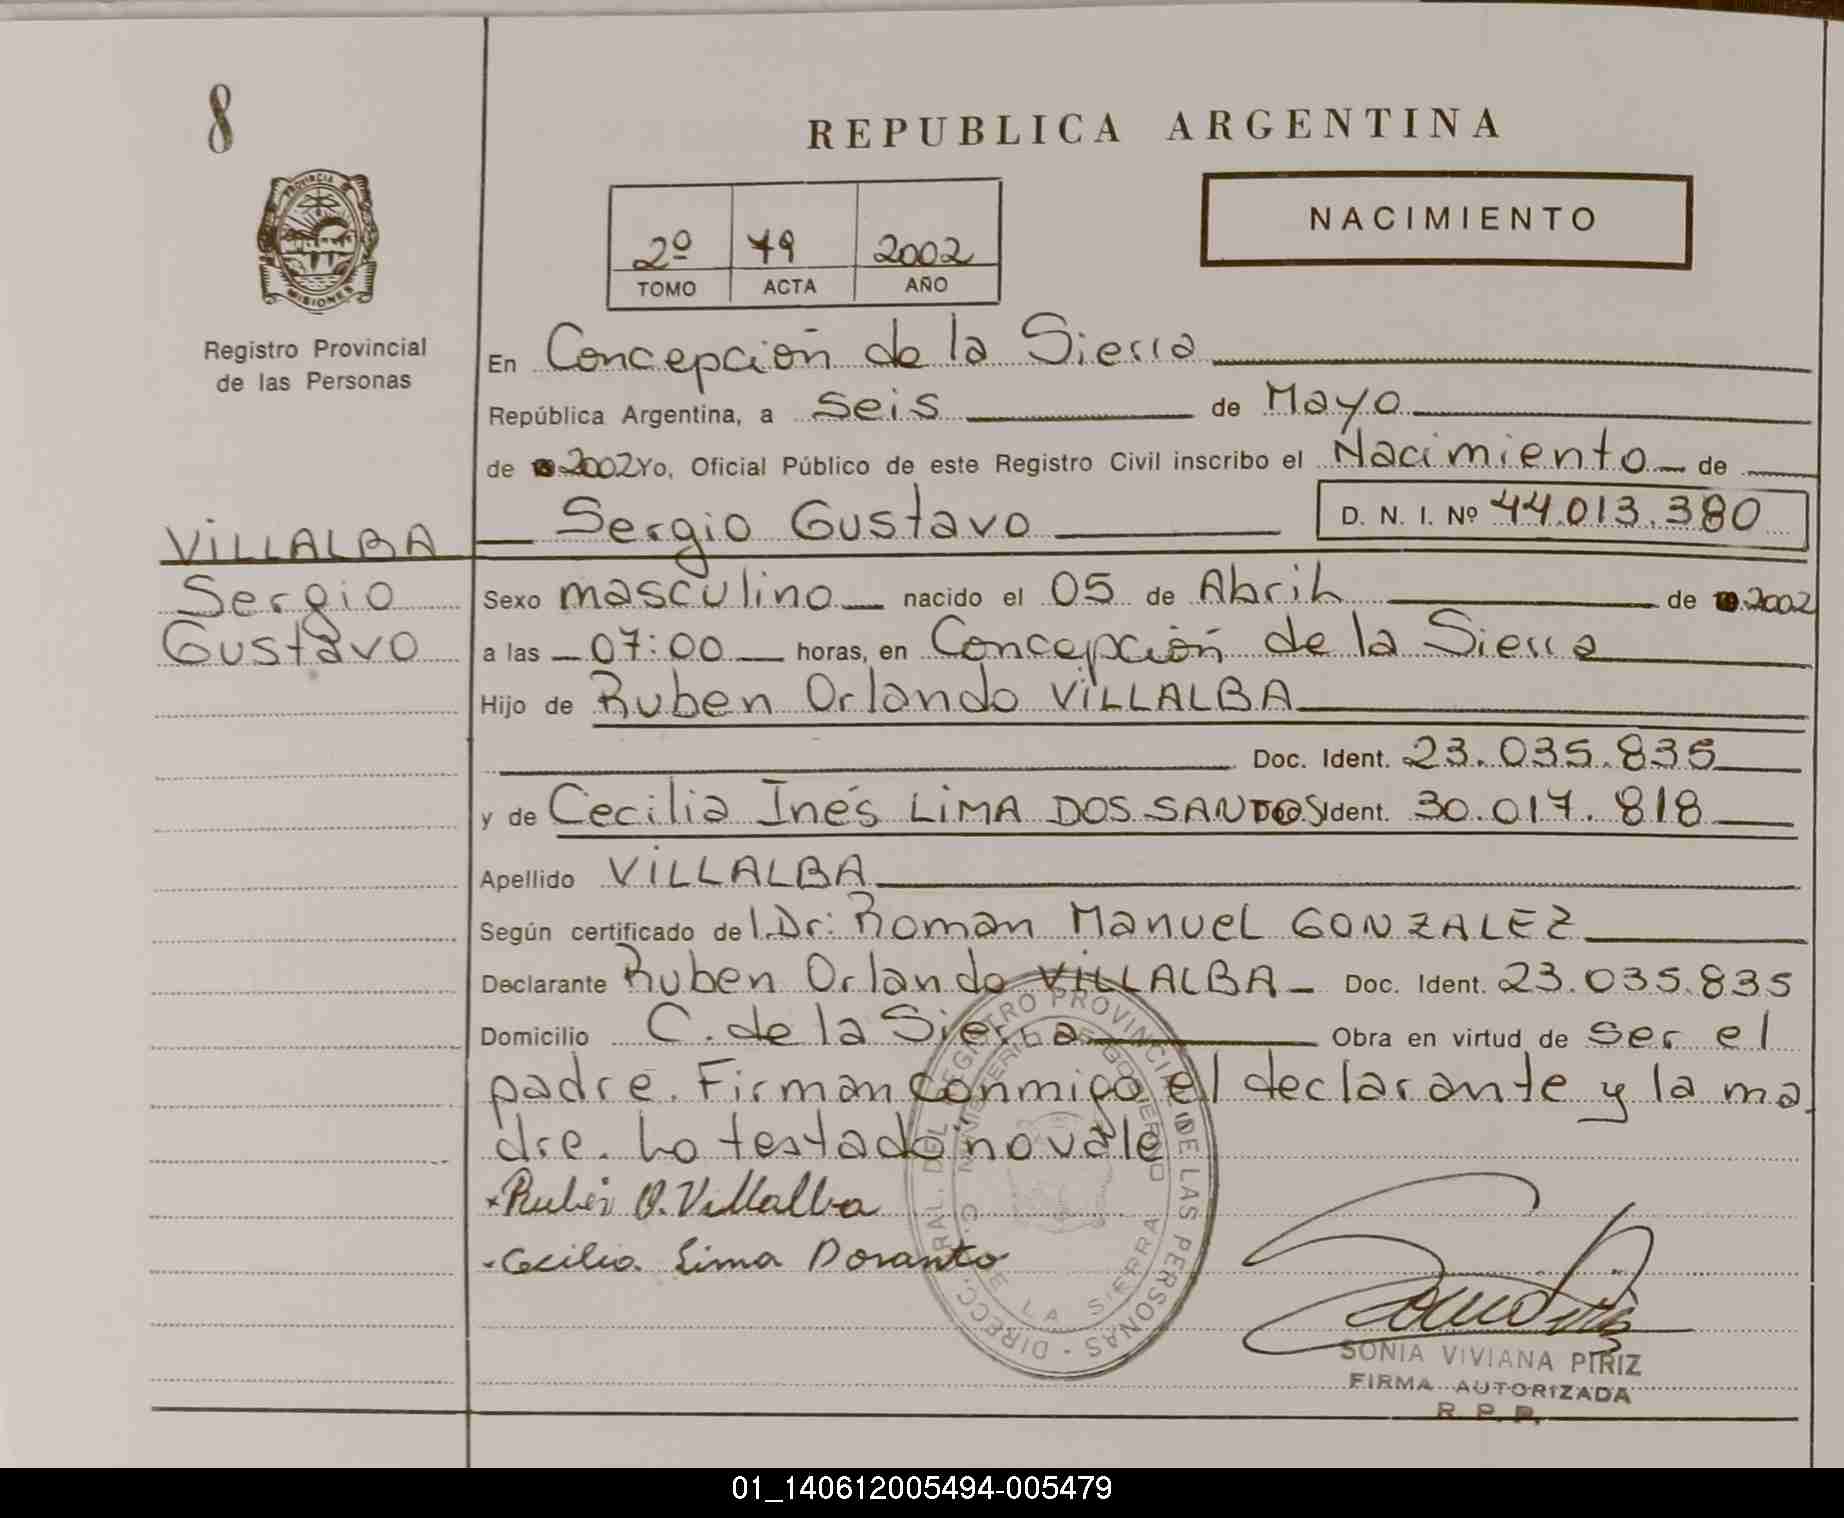 8
REPUBLICA ARGENTINA
NACIMIENTO
2º 79 2002
TOMO ACTA AÑO
PROVINCIA DE MISIONES
Registro Provincial
de las Personas
En Concepción de la Sierra
República Argentina, a seis de Mayo
de 2002 Yo, Oficial Público de este Registro Civil inscribo el Nacimiento de
Sergio Gustavo D. N. I. Nº 44.013.380
VILLALBA
Sergio
Gustavo
Sexo masculino nacido el 05 de Abril de 2002
a las 07:00 horas, en Concepción de la Sierra
Hijo de Ruben Orlando VILLALBA
Doc. Ident. 23.035.835
y de Cecilia Inés LIMA DOS SANTOS Ident. 30.017.818
Apellido VILLALBA
Según certificado del Dr: Roman Manuel GONZALEZ
Declarante Ruben Orlando VILLALBA Doc. Ident. 23.035.835
Domicilio C. de la Sierra Obra en virtud de ser el
padre. Firman conmigo el declarante y la ma
dre. Lo testado no vale
Ruben O. Villalba
Cecilia Lima Dosanto
DIRECC. GRAL. DEL REGISTRO PROVINCIAL DE LAS PERSONAS
C. DE LA SIERRA
SONIA VIVIANA PIRIZ
FIRMA AUTORIZADA
R. P. P.
01_140612005494-005479